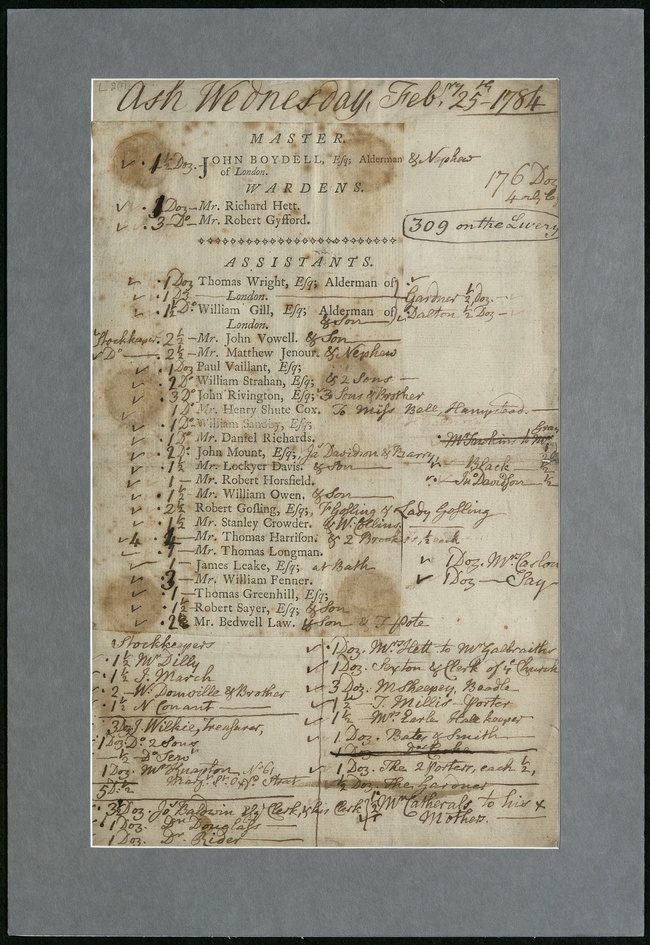 Ash Wednesday, Feb.ry 25th 1784
MASTER.
1½ Doz. JOHN BOYDELL, Esq; Alderman & Nephew
of London.
176 Doz
WARDENS.
1 Doz Mr. Richard Hett.
3 Do Mr. Robert Gyfford.
309 on the Livery
ASSISTANTS.
1 Doz Thomas Wright, Esq; Alderman of
1 Dz London. Gardner ½ Doz.
1½ Do William Gill, Esq; Alderman of Dalton ½ Doz
London. & Son
Stockkeeper 2½ Mr. John Vowell. & Son
Do 2½ Mr. Matthew Jenour. & Nephew
1 Doz Paul Vaillant, Esq;
2 Do William Strahan, Esq; & 2 Sons
3 Do John Rivington, Esq; 3 Sons & Brother
1 Do Mr. Henry Shute Cox. To Miss Ball, Hampstead.
1 Do William Sandby, Esq;
1 Do Mr. Daniel Richards.
2 Do John Mount, Esq; Jas Davidson & Barry,
1½ Mr. Lockyer Davis. & Son Black ½
1 Mr. Robert Horsfield. Jno Davidson ½
1½ Mr. William Owen. & Son
2½ Robert Gosling, Esq; F Gosling & Lady Gosling
1½ Mr. Stanley Crowder. & W. Collins.
4 Mr. Thomas Harrison. & 2 Brookes, ½ each
1 Mr. Thomas Longman.
1 James Leake, Esq; at Bath 1 Doz. Mrs. Carlon
3 Mr. William Fenner. 1 Doz Say
1 Thomas Greenhill, Esq;
1½ Robert Sayer, Esq; & Son
2 Mr. Bedwell Law. & Son & T Pote
Stockkeepers
1½ Mr Dilly
1½ J. March
2 W. Domville & Brother
1½ N Conant
3 Doz J. Wilkie, Treasurer,
1 Doz Do 2 Sons
½ Do Serv
1 Doz. Mrs Knapton, No 6,
Marg. St. Street
5 Dz ½
3½ Doz. Jos Baldwin Clerk, & his Clerk
1 Doz. Dr Douglass
1 Doz. Dr. Rider
1 Doz. Mrs Hett to Mr Galbraither
1 Doz. Sexton & Clerk of ye Church
3 Doz. M Sheepey, Beadle
1½ T. Millis Porter
1½ Mrs. Earle Hallkeeper
1 Doz. Bates & Smith
1 Doz. The 2 Porters, each ½,
½ Doz. The Gardner
Mr Catherals to his &
Mothers.